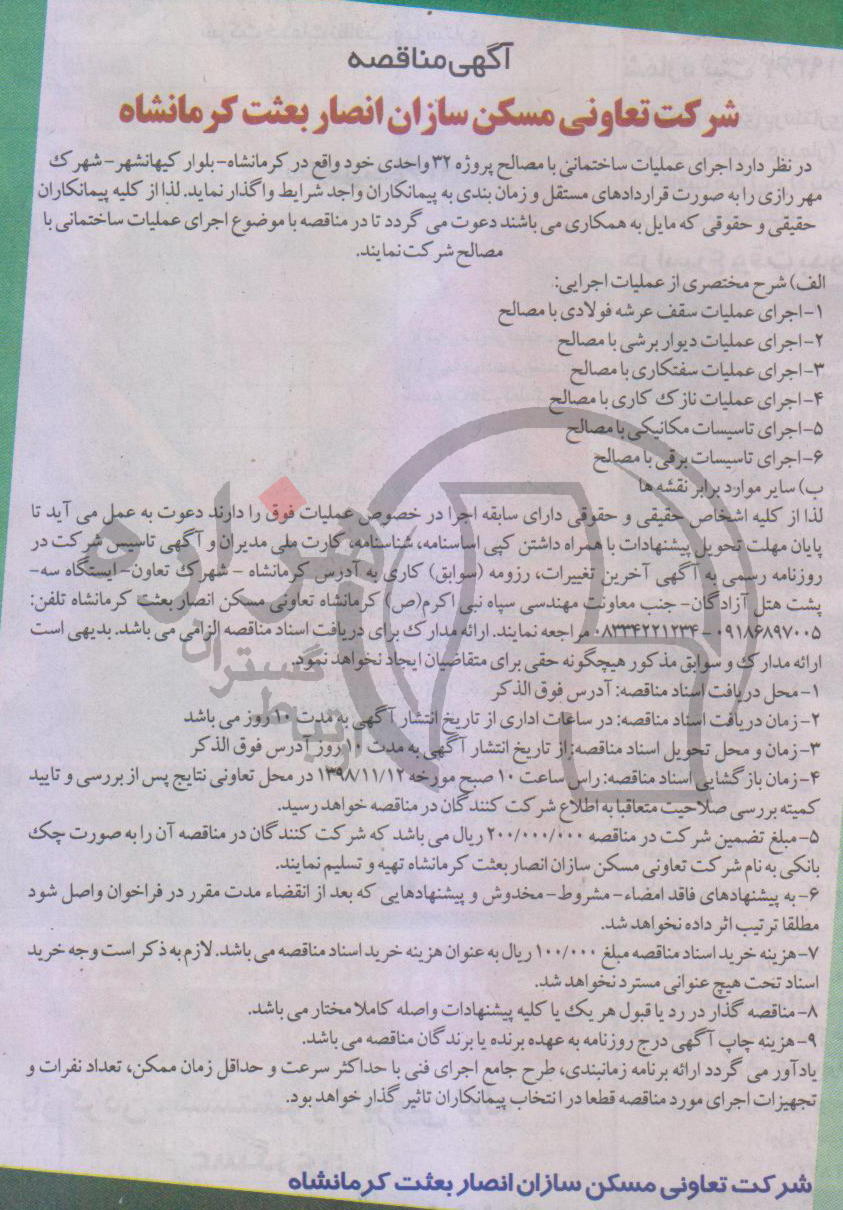 آگهی مناقصه
شرکت تعاونی مسکن سازان انصار بعثت کرمانشاه
در نظر دارد اجرای عملیات ساختمانی با مصالح پروژه ۳۲ واحدی خود واقع در کرمانشاه- بلوار کیهانشهر- شهرک
مهر رازی را به صورت قراردادهای مستقل و زمان بندی به پیمانکاران واجد شرایط واگذار نماید. لذا از کلیه پیمانکاران
حقیقی و حقوقی که مایل به همکاری می باشند دعوت می گردد تا در مناقصه با موضوع اجرای عملیات ساختمانی با
مصالح شرکت نمایند.
الف) شرح مختصری از عملیات اجرایی:
۱- اجرای عملیات سقف عرشه فولادی با مصالح
۲- اجرای عملیات دیوار برشی با مصالح
۳- اجرای عملیات سفتکاری با مصالح
۴- اجرای عملیات نازک کاری با مصالح
۵- اجرای تاسیسات مکانیکی با مصالح
۶- اجرای تاسیسات برقی با مصالح
ب) سایر موارد برابر نقشه ها
لذا از کلیه اشخاص حقیقی و حقوقی دارای سابقه اجرا در خصوص عملیات فوق را دارند دعوت به عمل می آید تا
پایان مهلت تحویل پیشنهادات با همراه داشتن کپی اساسنامه، شناسنامه، کارت ملی مدیران و آگهی تاسیس شرکت در
روزنامه رسمی به آگهی آخرین تغییرات، رزومه (سوابق) کاری به آدرس کرمانشاه - شهرک تعاون- ایستگاه سه-
پشت هتل آزادگان- جنب معاونت مهندسی سپاه نبی اکرم(ص) کرمانشاه تعاونی مسکن انصار بعثت کرمانشاه تلفن:
۰۹۱۸۶۸۹۷۰۰۵ - ۰۸۳۳۴۲۲۱۲۳۴ مراجعه نمایند. ارائه مدارک برای دریافت اسناد مناقصه الزامی می باشد. بدیهی است
ارائه مدارک و سوابق مذکور هیچگونه حقی برای متقاضیان ایجاد نخواهد نمود.
۱- محل دریافت اسناد مناقصه: آدرس فوق الذکر
۲- زمان دریافت اسناد مناقصه: در ساعات اداری از تاریخ انتشار آگهی به مدت ۱۰ روز می باشد
۳- زمان و محل تحویل اسناد مناقصه: از تاریخ انتشار آگهی به مدت ۱۰ روز آدرس فوق الذکر
۴- زمان بازگشایی اسناد مناقصه: راس ساعت ۱۰ صبح مورخه ۱۳۹۸/۱۱/۱۲ در محل تعاونی نتایج پس از بررسی و تایید
کمیته بررسی صلاحیت متعاقبا به اطلاع شرکت کنندگان در مناقصه خواهد رسید.
۵- مبلغ تضمین شرکت در مناقصه ۲۰۰/۰۰۰/۰۰۰ ریال می باشد که شرکت کنندگان در مناقصه آن را به صورت چک
بانکی به نام شرکت تعاونی مسکن سازان انصار بعثت کرمانشاه تهیه و تسلیم نمایند.
۶- به پیشنهادهای فاقد امضاء- مشروط- مخدوش و پیشنهادهایی که بعد از انقضاء مدت مقرر در فراخوان واصل شود
مطلقا ترتیب اثر داده نخواهد شد.
۷- هزینه خرید اسناد مناقصه مبلغ ۱۰۰/۰۰۰ ریال به عنوان هزینه خرید اسناد مناقصه می باشد. لازم به ذکر است وجه خرید
اسناد تحت هیچ عنوانی مسترد نخواهد شد.
۸- مناقصه گذار در رد یا قبول هر یک یا کلیه پیشنهادات واصله کاملا مختار می باشد.
۹- هزینه چاپ آگهی درج روزنامه به عهده برنده یا برندگان مناقصه می باشد.
یادآور می گردد ارائه برنامه زمانبندی، طرح جامع اجرای فنی با حداکثر سرعت و حداقل زمان ممکن، تعداد نفرات و
تجهیزات اجرای مورد مناقصه قطعا در انتخاب پیمانکاران تاثیر گذار خواهد بود.
شرکت تعاونی مسکن سازان انصار بعثت کرمانشاه
هزاره
گستران
ارتباط